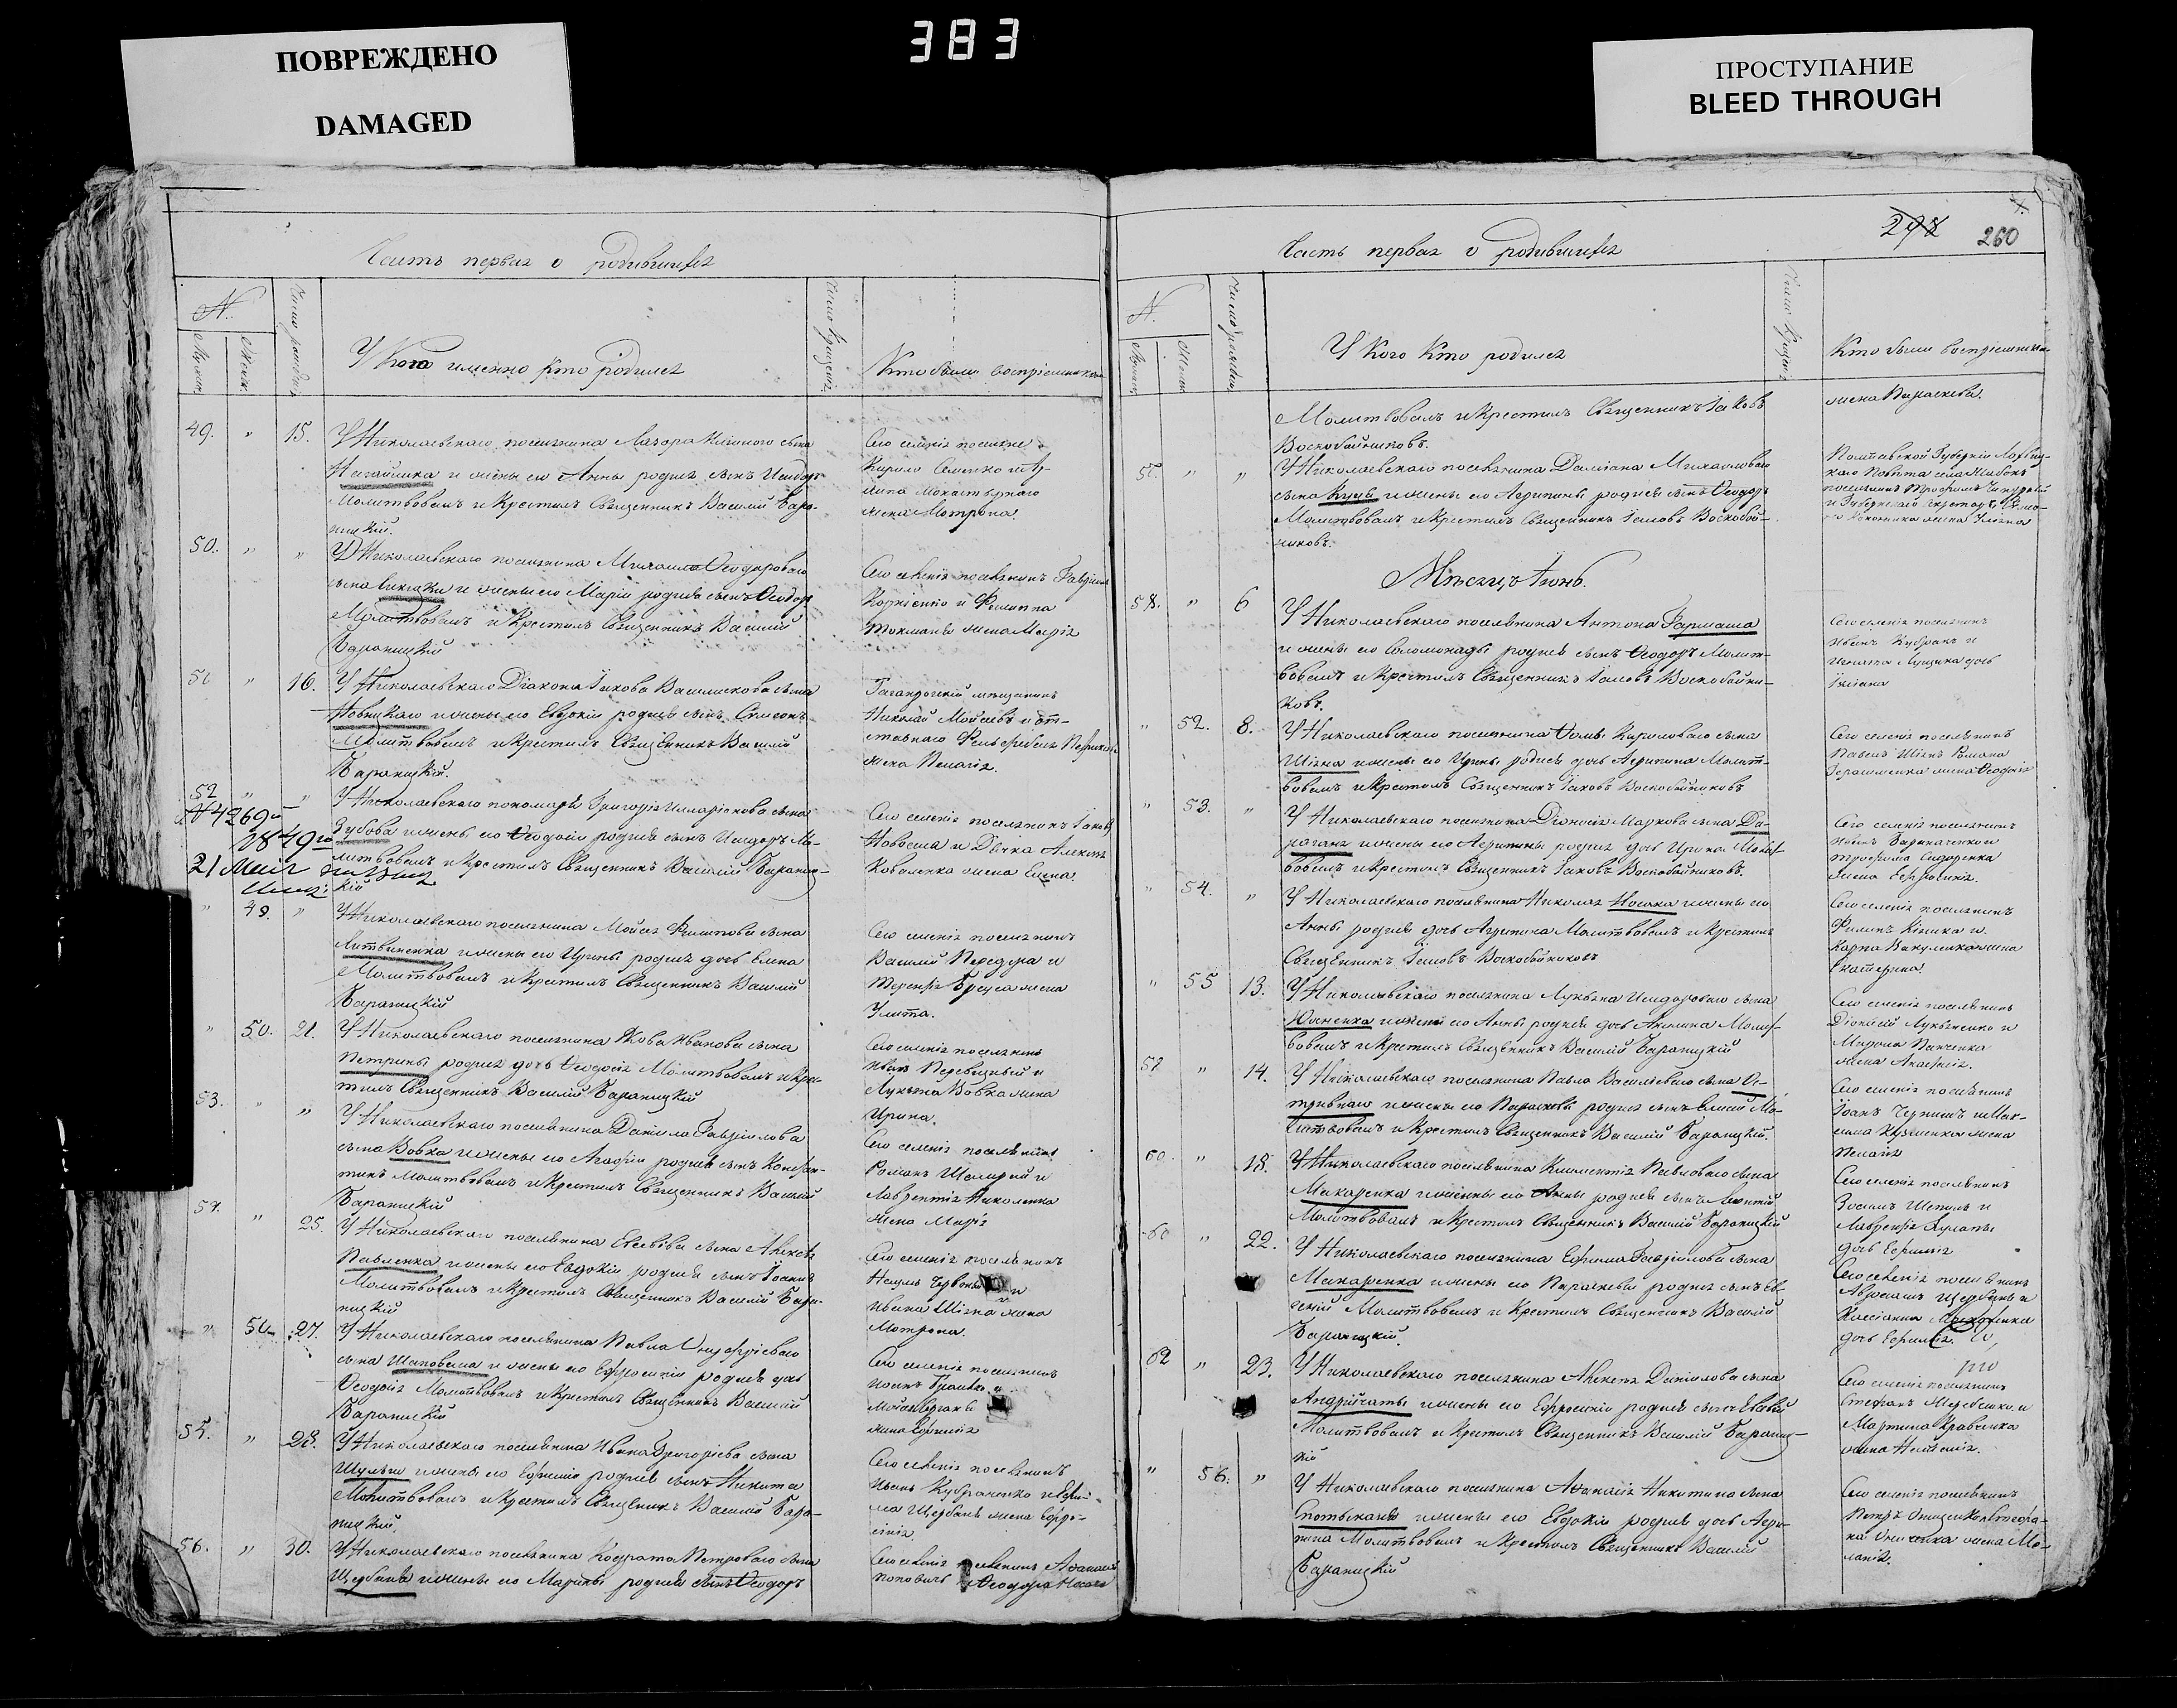 383
ПОВРЕЖДЕНО
DAMAGED
ПРОСТУПАНИЕ
BLEED THROUGH
Часть первая о родившихся
N.
Число рожден.
У Кого именно кто родился
Число крещен.
Кто были восприемниками
49. " 15. У Николаевскаго поселянина Лазора сына
и жены его Анны родился сынъ Исидоръ
Молитвовалъ и Крестилъ Священникъ Василий Бара-
ницкий.
Сего селения поселяне
Кирило Семенко и
жена Мотрона.
50. " " У Николаевскаго поселянина Михаила Феодороваго
сына и жены его Марии родился сынъ Феодоръ
Молитвовалъ и Крестилъ Священникъ Василий
Бараницкий
Сего селения поселянинъ Гавриилъ
и Филиппа
жена Мария
51 " 16. У Николаевскаго Диакона Іакова Василиекова сына
Новицкаго и жены его Евдокии родился сынъ Симеонъ
Молитвовалъ и Крестилъ Священникъ Василий
Бараницкий.
Таганрогский мещанинъ
Николай Мойсеевъ и от-
ставнаго
жена Пелагия.
52 " " У Николаевскаго пономаря Григория Иллариокова сына
Зубова и жены его Феодосии родился сынъ Исидоръ Мо-
литвовалъ и Крестилъ Священникъ Василий Бараниц-
кий
N 4269
1849го
21 Мая
Сего селения поселянинъ Іаковъ
и Дячка Алексея
Коваленка жена Елена.
" 49. " У Николаевскаго поселянина Мойсея Филипова сына
Литвиненка и жены его Ирины родилась дочь Елена
Молитвовалъ и Крестилъ Священникъ Василий
Бараницкий
Сего селения поселянинъ
Василий Передера и
Терентия жена
Улита.
" 50. 21. У Николаевскаго поселянина Якова Иванова сына
Петрины родилась дочь Феодосия Молитвовалъ и Крес-
тилъ Священникъ Василий Бараницкий
Сего селения поселянинъ
Иванъ и
Лукьяна Вовка жена
Ирина.
53. " " У Николаевскаго поселянина Данила Гавриилова
сына Вовка и жены его Агафии родился сынъ Констан-
тинъ Молитвовалъ и Крестилъ Священникъ Василий
Бараницкий
Сего селения поселянинъ
Романъ и
Лаврентия Николенка
жена Мария
54. " 25. У Николаевскаго поселянина Евсевиева сына Алексея
Павленка и жены его Евдокии родился сынъ Іоаннъ
Молитвовалъ и Крестилъ Священникъ Василий Бара-
ницкий
Сего селения поселянинъ
Наумъ и
Ивана жена
Мотрона.
" 27. У Николаевскаго поселянина Павла Онуфриеваго
сына Шаповала и жены его Ефросинии родилась дочь
Феодосия Молитвовалъ и Крестилъ Священникъ Василий
Бараницкий
Сего селения поселянинъ
и
жена Ефимия
55. " 28. У Николаевскаго поселянина Ивана Григориева сына
Шульги и жены его Ефимии родился сынъ Никита
Молитвовалъ и Крестилъ Священникъ Василий Бара-
ницкий.
Сего селения поселянинъ
Иванъ Кубраченко и Ефи-
ма Щербаня жена Ефро-
синия
56. " 30. У Николаевскаго поселянина Кодрата Петроваго сына
Щербины и жены его Марины родился сынъ Феодоръ
Сего селения поселянинъ Афанасий
Поповичъ Феодора
Часть первая о родившихся
298
260
N.
Число рожден.
У Кого Кто родился
Число Крещен.
Кто были восприемники
Молитвовалъ и Крестилъ Священникъ Іаковъ
Воскобойниковъ.
жена Параскева.
57. " " У Николаевскаго поселянина Дамиана Михайловаго
сына Куца и жены его Агрипины родился сынъ Феодоръ
Молитвовалъ и Крестилъ Священникъ Іаковъ Воскобой-
никовъ.
Полтавской Губернии Лохвиц-
каго Повета села
поселянинъ Трофимъ
и Губернскаго Секретаря
жена
Месяцъ Іюнь.
58. " 6 У Николаевскаго поселянина Антона Гармаша
и жены его Соломониды родился сынъ Феодоръ Молит-
вовалъ и Крестилъ Священникъ Іаковъ Воскобойни-
ковъ.
Сего селения поселянинъ
Иванъ Кубракъ и
Игната Лущика дочь
Улиана
" 52. 8. У Николаевскаго поселянина Фомы Кириловаго сына
и жены его Ирины родилась дочь Агрипина Молит-
вовалъ и Крестилъ Священникъ Іаковъ Воскобойниковъ
Сего селения поселянинъ
Павелъ Романа
Герасименка жена Феодосия
" 53. " У Николаевскаго поселянина Дионисия Маркова сына Да-
рагана и жены его Агрипины родилась дочь Ирина Молит-
вовалъ и Крестилъ Священникъ Іаковъ Воскобойниковъ.
Сего селения поселянинъ
Иванъ и
Трофима Сидоренка
жена Ефросиния.
" 54. " У Николаевскаго поселянина Николая Носака и жены его
Анны родилась дочь Агрипина Молитвовалъ и Крестилъ
Священникъ Іаковъ Воскобойниковъ
Сего селения поселянинъ
Филипъ и
Карпа Вакуленка жена
Екатерина.
" 55 13. У Николаевскаго поселянина Лукьяна Исидороваго сына
Юхненка и жены его Анны родилась дочь Акилина Молит-
вовалъ и Крестилъ Священникъ Василий Бараницкий
Сего селения поселянинъ
Дионисий Лукьяненко и
Марона Панченка
жена Анастасия.
59 " 14. У Николаевскаго поселянина Павла Василиеваго сына Ос-
тривнаго и жены его Параскевы родился сынъ Елисей Мо-
литвовалъ и Крестилъ Священникъ Василий Бараницкий.
Сего селения поселянинъ
Іоанъ Чернишъ и Мак-
сима Кузменка жена
Пелагия
60. " 18. У Николаевскаго поселянина Климентия Павловаго сына
Макаренка и жены его Анны родился сынъ Леонтий
Молитвовалъ и Крестилъ Священникъ Василий Бараницкий
Сего селения поселянинъ
Зосимъ Шепиль и
Лаврентия
дочь Ефимия
60 " 22. У Николаевскаго поселянина Ефима Гавриилова сына
Макаренка и жены его Параскевы родился сынъ Ев-
сений Молитвовалъ и Крестилъ Священникъ Василий
Бараницкий.
Сего селения поселянинъ
Авраамъ Щербина и
Касиана
дочь Ефимия.
62 " 23. У Николаевскаго поселянина Алексея Данилова сына
Андрийчаты и жены его Ефросинии родился сынъ Евсевий
Молитвовалъ и Крестилъ Священникъ Василий Бараниц-
кий
Сего селения поселянинъ
Стефанъ и
Мартина Кравченка
жена
" 56. " У Николаевскаго поселянина Афанасия Никитина сына
Спотыкача и жены его Евдокии родилась дочь Агри-
пина Молитвовалъ и Крестилъ Священникъ Василий
Бараницкий
Сего селения поселянинъ
Петръ Онищенко и Стефа-
на Онищенка жена Ма-
лания.